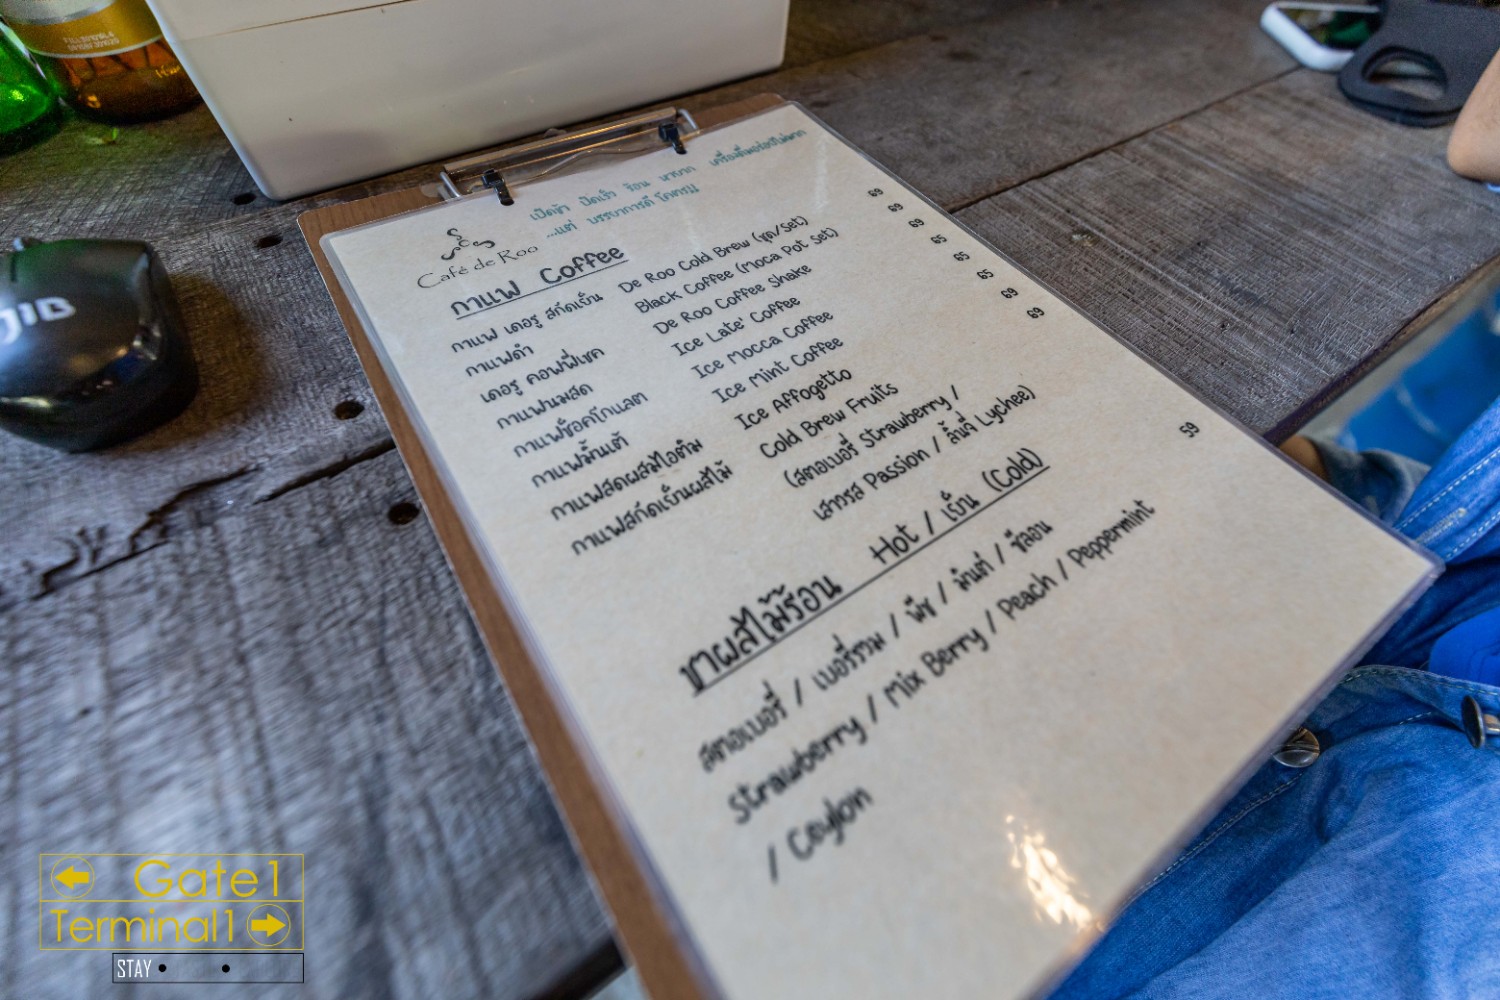 เปิดช้า ปิดเร็ว ร้อน หายาก เครื่องดื่มอร่อยไม่มาก
...แต่ บรรยากาศดี โคตรๆๆ
Café de Roo
กาแฟ Coffee
กาแฟ เดอรู สกัดเย็น De Roo Cold Brew (ชุด/Set) 69
กาแฟดำ Black Coffee (Moca Pot Set) 69
เดอรู คอฟฟี่เชค De Roo Coffee Shake 69
กาแฟนมสด Ice Late' Coffee 65
กาแฟช็อคโกแลต Ice Mocca Coffee 65
กาแฟมิ้นแต้ Ice Mint Coffee 65
กาแฟสดผสมไอติม Ice Affogetto 69
กาแฟสกัดเย็นผลไม้ Cold Brew Fruits 69
(สตอเบอรี่ Strawberry /
เสาวรส Passion / ลิ้นจี่ Lychee)
ชาผลไม้ร้อน Hot / เย็น (Cold) 59
สตอเบอรี่ / เบอรี่รวม / พีช / มิ้นแต่ / ซีลอน
Strawberry / Mix Berry / Peach / Peppermint
/ Ceylon
JIB
Gate1
Terminal1
STAY